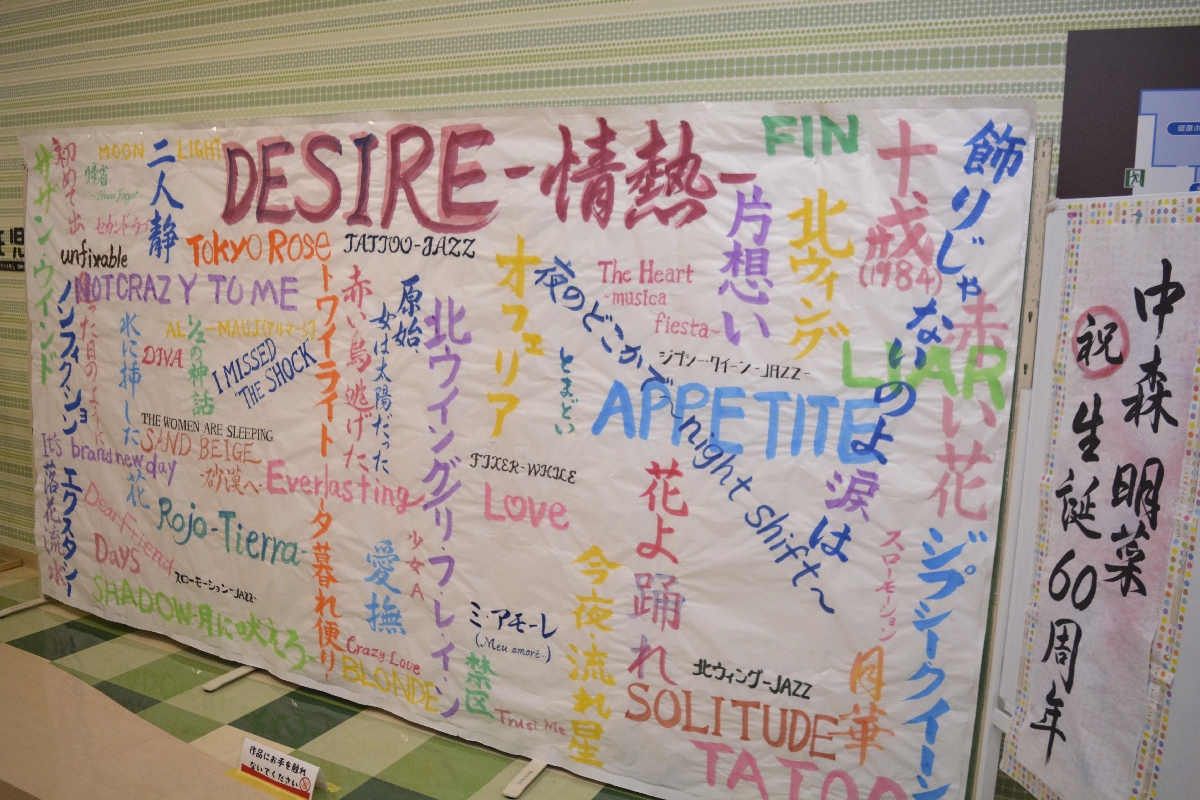 サザン・ウインド
初めて出
った日のように
MOON LIGHT
帰省
~Never Forget~
セカンド・ラブ
二人静
DESIRE-情熱-
FIN
十戒
(1984)
飾りじゃないのよ涙は
unfixable
TOKYO ROSE
TATTOO-JAZZ
片想い
北ウィング
NOT CRAZY TO ME
ノンフィクション エクスタシー
水に挿した花
AL-MAUJ(アルマージ)
DIVA
1/2の神話
I MISSED "THE SHOCK"
トワイライト-夕暮れ便り-
赤い鳥逃げた
原始、女は太陽だった
北ウイング/リ・フ・レ・イ・ン
オフェリア
夜のどこかで~night shift~
とまどい
The Heart
~musica
fiesta~
ジプシー・クイーン-JAZZ-
LIAR
赤い花
APPETITE
THE WOMEN ARE SLEEPING
SAND BEIGE
-砂漠へ-
It's brand new day
落花流水
Everlasting
FIXER-WHILE
Love
花よ踊れ
Dear Friend
Days
Rojo-Tierra-
スローモーション-JAZZ-
SHADOW-月に吠えろ-
愛撫
少女A
ミ・アモーレ
(Meu amor é…)
今夜、流れ星
スローモーション
ジプシー・クイーン
Crazy Love
BLONDE
禁区
Trust Me
北ウィング-JAZZ
SOLITUDE
月華
TATOO
作品にお手を触れ
ないでください
中森明菜
祝生誕60周年